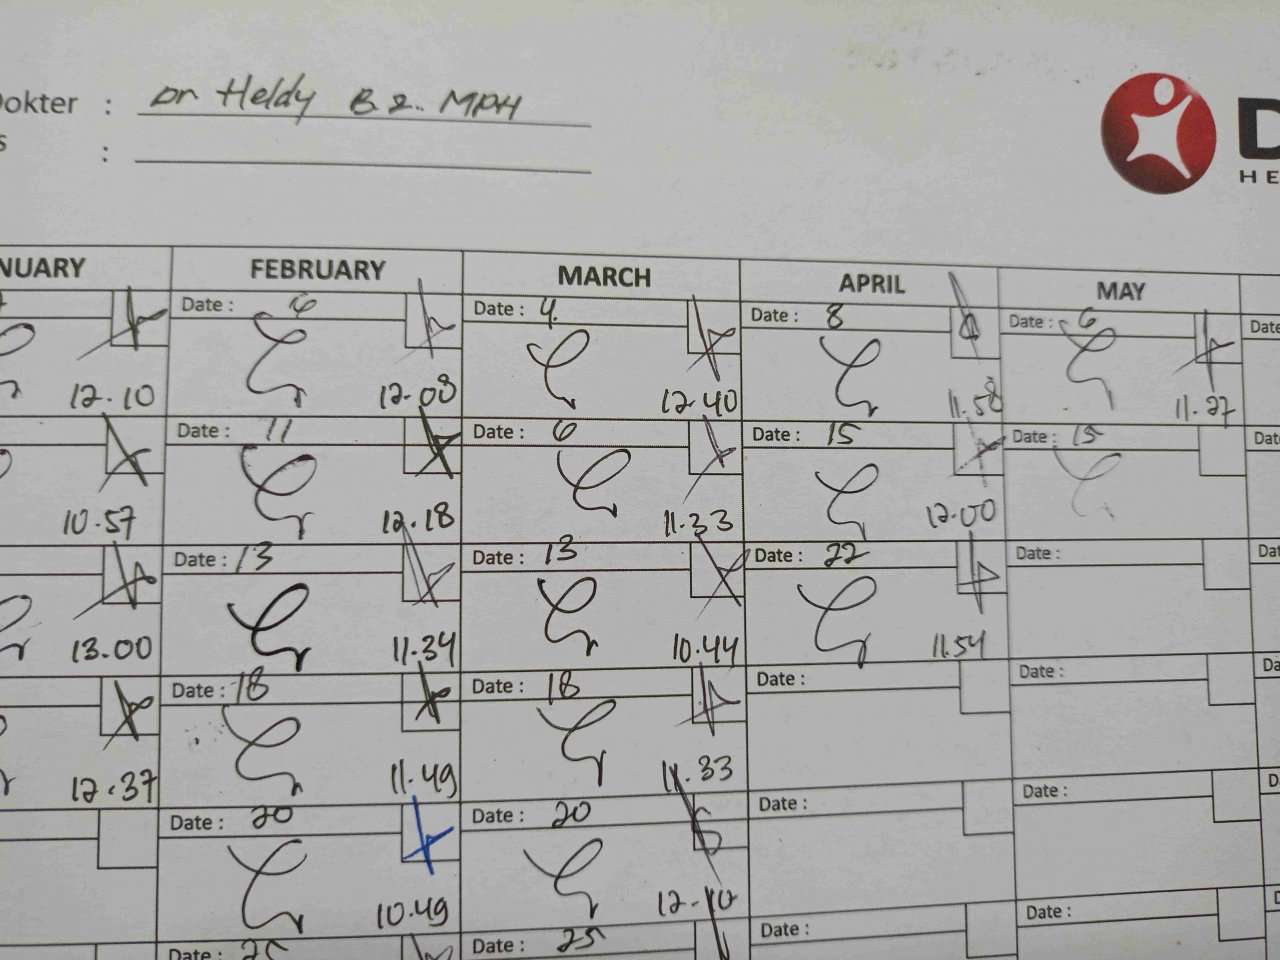 Dokter : Dr Heldy B.Z. MPH
s :
D
HE
NUARY FEBRUARY MARCH APRIL MAY
Date : 6 Date : 4. Date : 8 Date : 6 Date
12.10 12.08 12.40 11.58 11.27
Date : 11 Date : 6 Date : 15 Date : 15 Dat
10.57 12.18 11.33 12.00
Date : 13 Date : 13 Date : 22 Date : Dat
13.00 11.34 10.44 11.54
Date : 18 Date : 18 Date : Date : Da
12.37 11.49 11.33
Date : 20 Date : 20 Date : Date : D
10.49 12.10
Date : 25 Date : 25 Date : Date : D